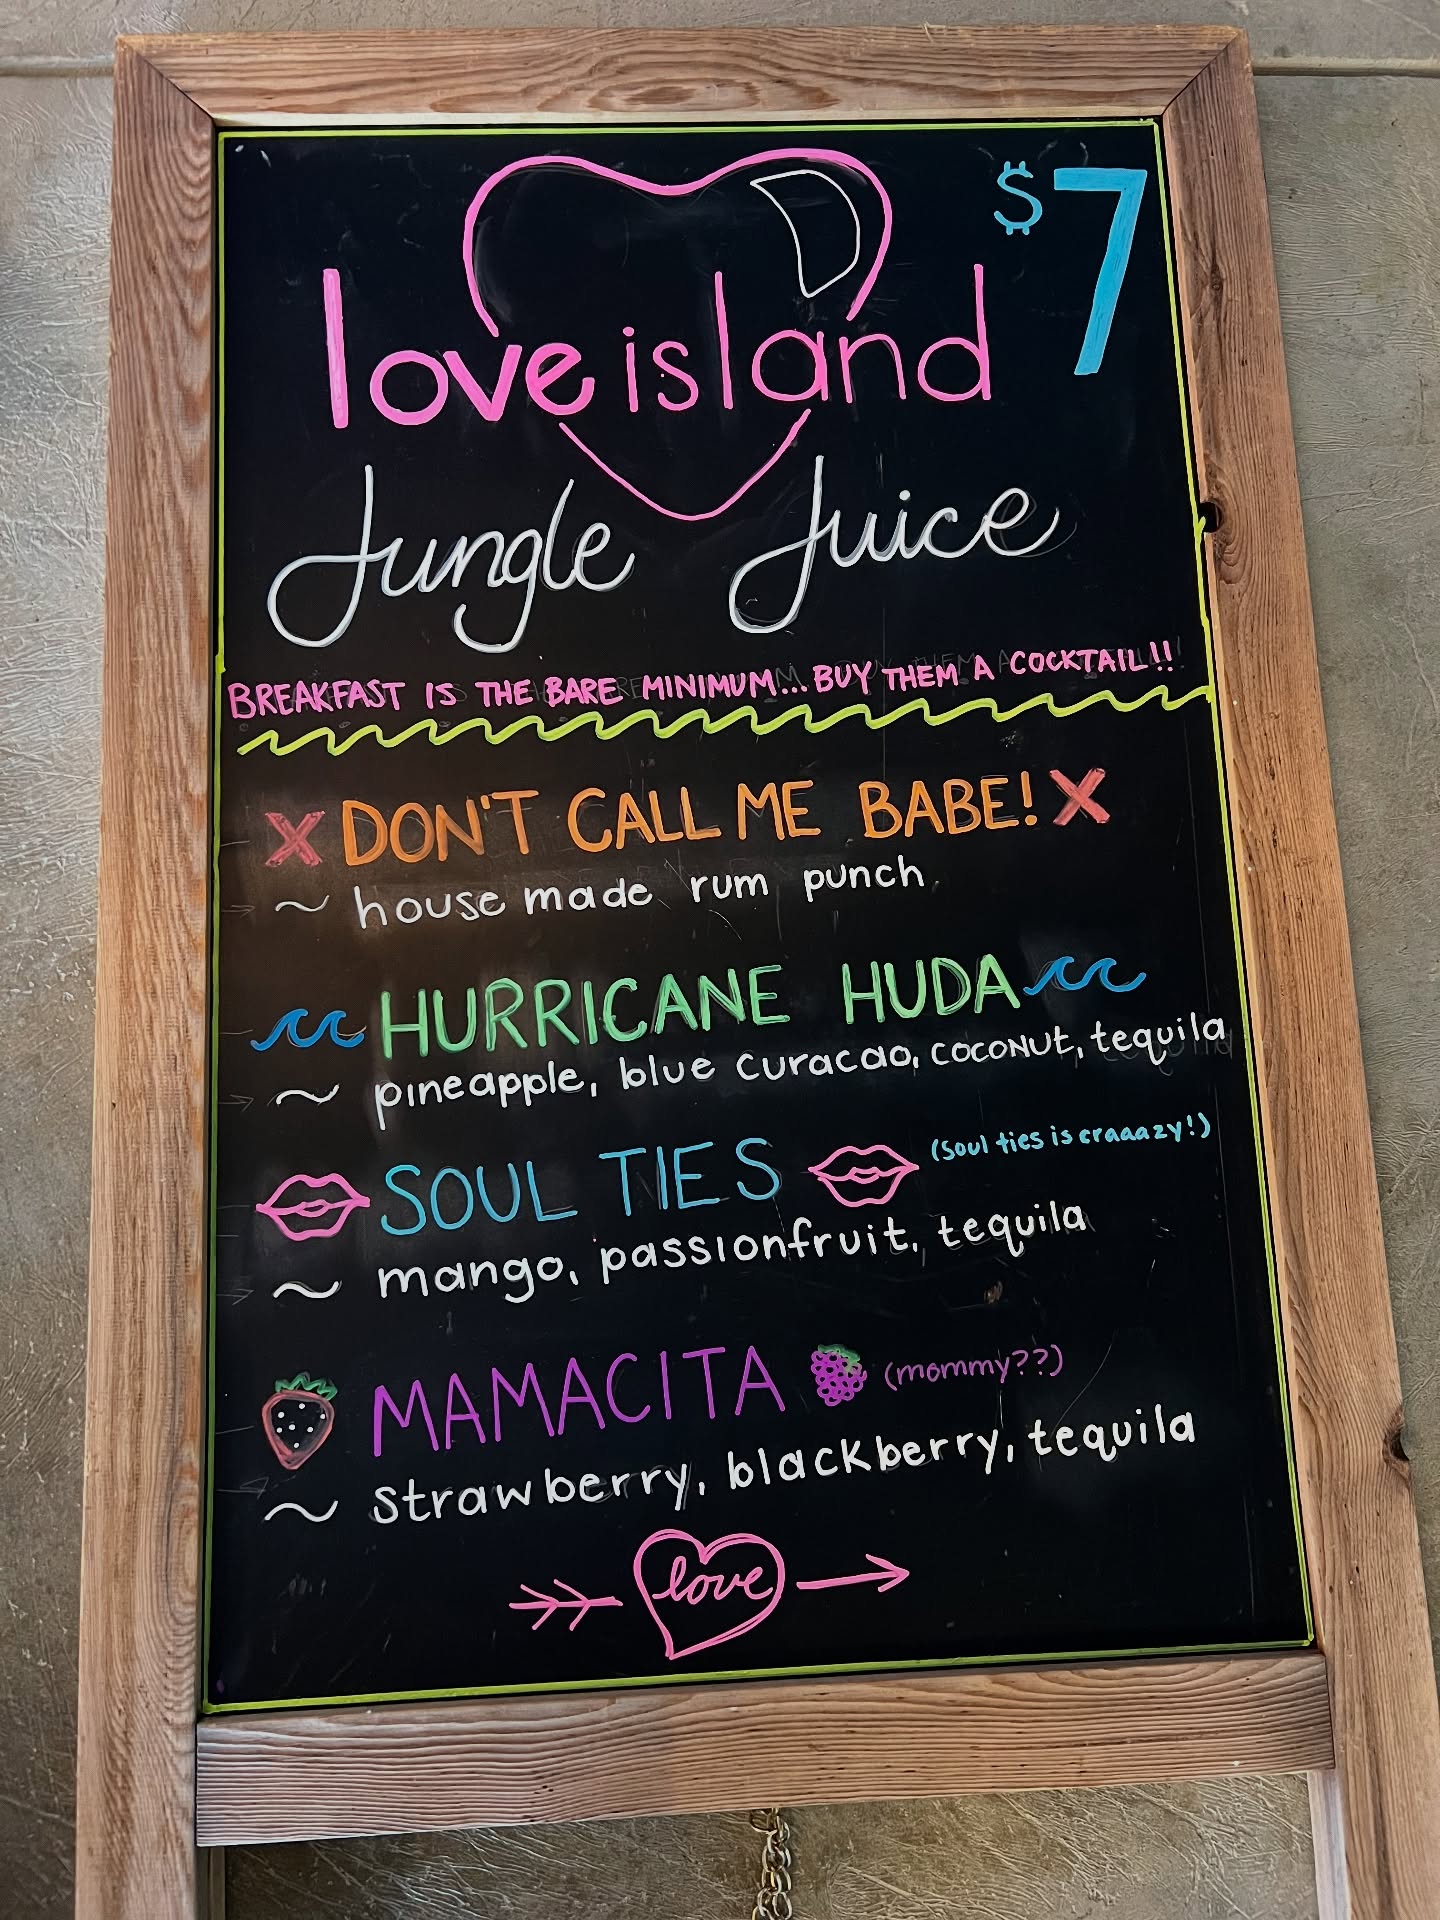 $7
love island
Jungle Juice
BREAKFAST IS THE BARE MINIMUM... BUY THEM A COCKTAIL!!
X DON'T CALL ME BABE! X
~ house made rum punch
HURRICANE HUDA
~ pineapple, blue curacao, coconut, tequila
SOUL TIES (soul ties is craaazy!)
~ mango, passionfruit, tequila
MAMACITA (mommy??)
~ strawberry, blackberry, tequila
love